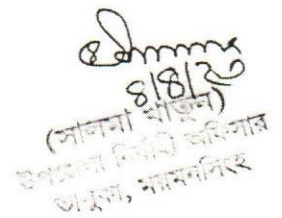 ৪/৪/২০
(সালমা খাতুন)
উপজেলা নির্বাহী অফিসার
ভালুকা, ময়মনসিংহ